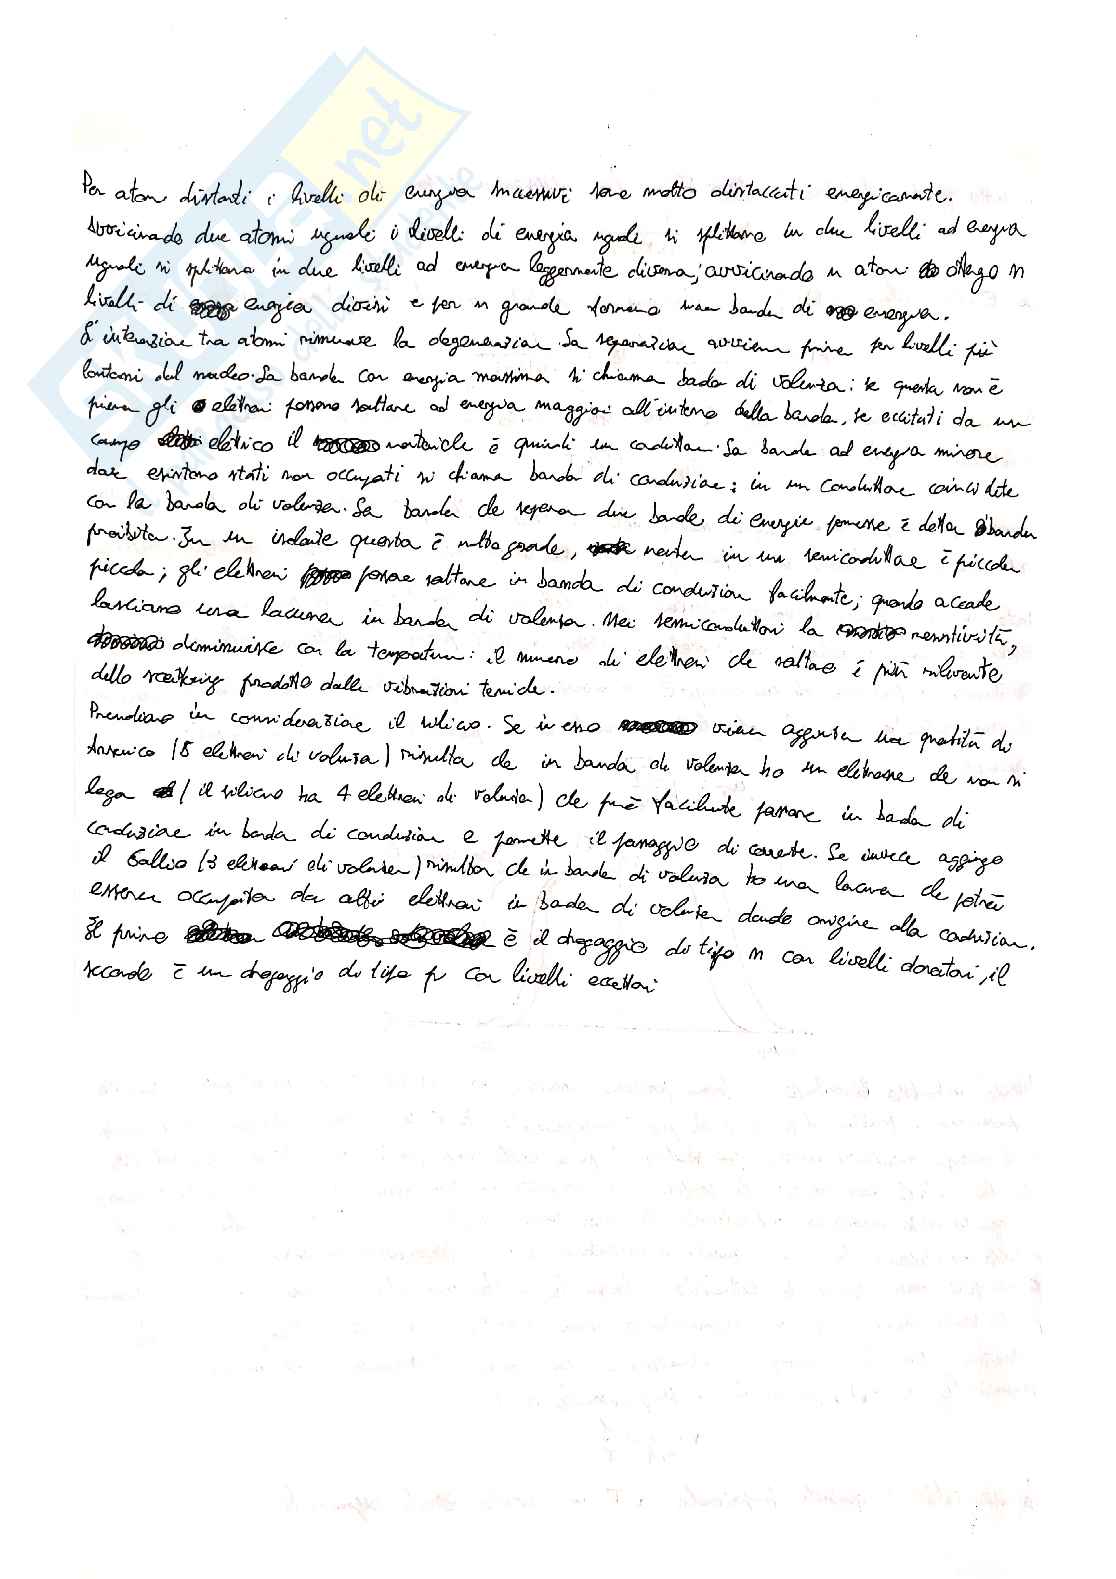 Per atomi distanti i livelli di energia successivi sono molto distaccati energicamente.
Avvicinado due atomi uguali i livelli di energia uguali si splittano in due livelli ad energia
uguali si splittano in due livelli ad energia leggermente diversa; avvicinado n atomi ottengo n
livelli di energia divisi e per n grande formano una banda di energia.
L'interazione tra atomi rimuove la degenerazione. La separazione avviene prima per livelli più
lontani dal nucleo. La banda con energia massima si chiama bada di valenza: se questa non è
piena gli elettroni possono saltare ad energia maggiori all'interno della banda, se eccitati da un
campo elettrico il materiale è quindi un conduttore. La banda ad energia minore
dove esistono stati non occupati si chiama banda di conduzione; in un conduttore coincidete
con la banda di valenza. La banda che separa due bande di energie permesse è detta banda
proibita. In un isolate questa è molto grade, mentre in un semiconduttore è piccola
piccola; gli elettroni possono saltare in banda di conduzione facilmente; quando accade
lasciano una lacuna in banda di valenza. Nei semiconduttori la resistività,
diminuisce con la temperatura: il numero di elettroni che saltano è più rilevante
dello scattering prodotto dalle vibrazioni termiche.
Prendiamo in considerazione il silicio. Se in esso viene aggiunta una quatità di
Arsenico (5 elettroni di valenza) risulta che in banda di valenza ho un elettrone che non si
lega (il silicio ha 4 elettroni di valenza) che può facilmente passare in bada di
conduzione in banda di conduzione e permette il passaggio di corrente. Se invece aggiungo
il Gallio (3 elettroni di valenza) risulta che in banda di valenza ho una lacuna che potrà
essere occupata da altri elettroni in bada di valenza dando origine alla conduzione.
Il primo è il drogaggio di tipo n con livelli donatori, il
secondo è un drogaggio di tipo p con livelli accettori